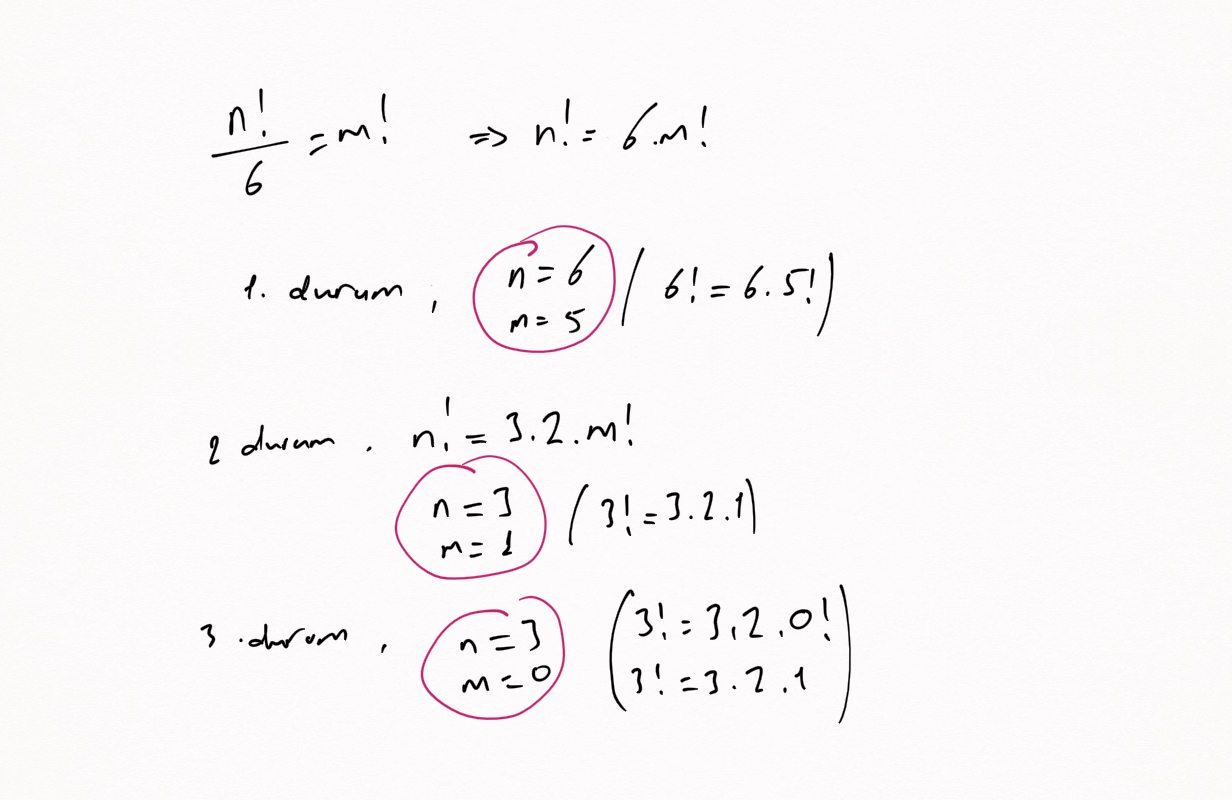 n!/6 = m! ⇒ n! = 6.m!
1. durum, n = 6 (6! = 6.5!)
m = 5
2 durum. n! = 3.2.m!
n = 3 (3! = 3.2.1)
m = 1
3.durum, n = 3 (3! = 3.2.0!
m = 0 3! = 3.2.1)